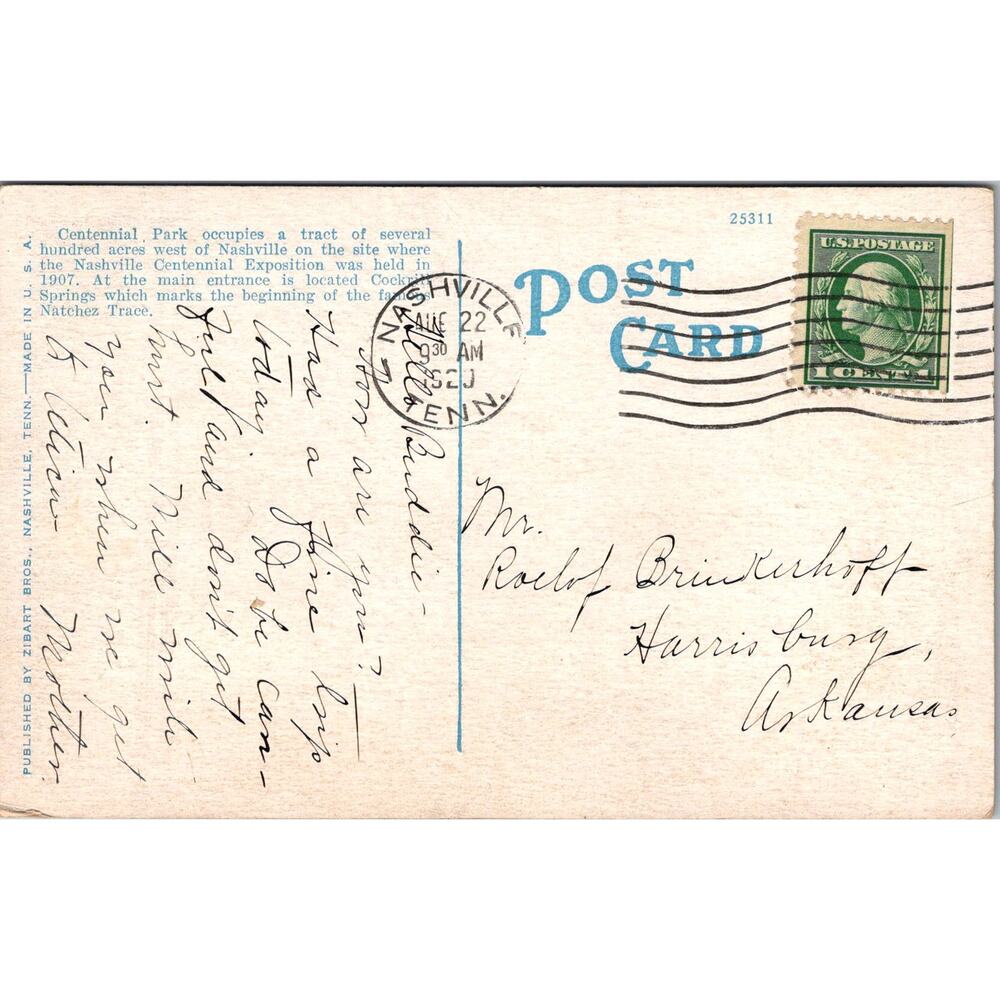 Centennial Park occupies a tract of several
hundred acres west of Nashville on the site where
the Nashville Centennial Exposition was held in
1907. At the main entrance is located Cockrill
Springs which marks the beginning of the famous
Natchez Trace.
PUBLISHED BY ZIBART BROS., NASHVILLE, TENN.—MADE IN U. S. A.
25311
POST
CARD
U.S. POSTAGE
1 CENT 1
NASHVILLE
TENN.
AUG 22
9 30 AM
1920
Hello Buddie—
How are you?
Had a fine trip
today. Do be care-
ful and don't get
hurt. Will write
you when we get
to Utica. Mother.
Mr.
Roelof Brinkerhoff
Harrisburg,
Arkansas